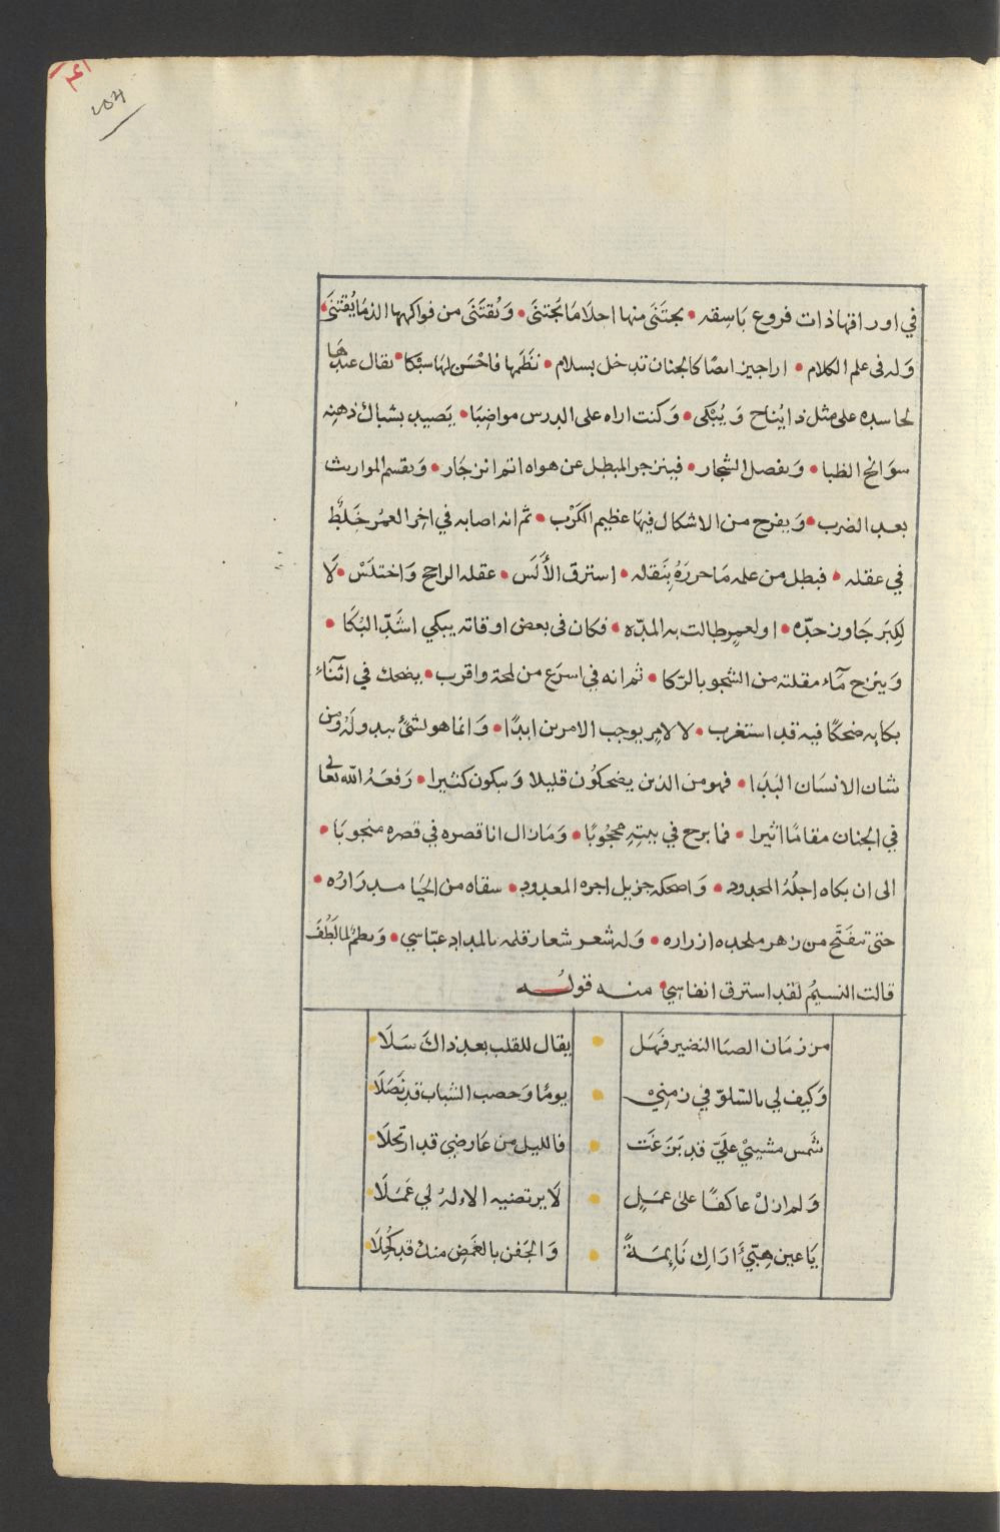 في اوراقها ذات فروع بَاسِقه • يجتَنَى منها احلَا مَا يُجتنَى • وَيُقتَنَى من فواكهها الذ مَا يُقتنَى •
وَله فى علم الكلام • اراجيز ايضا كالجنان تدخل بسلام • نظَمها فاحْسَن لهَا سَبْكا • يقال عندهَا
لحاسده على مثل ذا يُناح وَيُبْكى • وَكنت اراه على الدرس مواضِبَا • يَصيد بشباك ذهنه
سوَانح الظبا • وَيفصل الشجار • فينزجر المبطل عن هواه اتم انزجَار • وَيقسم المواريث
بعد الضرب • وَيفرج من الاشكال فيهَا عظيم الكَرْب • ثم انه اصابه في اخِر العمُر خَلطٌ
في عقله • فبطل من علمه مَا حررَهُ بِنَقله • استرق الأَلَس • عقله الراجح وَاختلَسْ • لَا
لِكِبَر جَاوز حدّه • او لعمرٍ طالت به المدّه • فكان فى بعض اوقاته يبكي اشَدّ البُكَا •
وَينزح مَآء مقلته من الشجو بالرّكا • ثم انه في اسرَع من لمحة واقرب • يضحك في اثنَآء
بكايه ضحكًا فيه قد استغرب • لا لامرٍ يوجب الامرين ابدًا • وَانما هو لشئ يبدو لَهُ ومن
شان الانسَان البَدَا • فهو من الذين يضحكوُن قليلا وَيبكون كثيرا • رَفعَهُ الله تعالى
في الجنان مقامًا اثيرا • فما برح في بيتهِ محجُوبًا • وَمَا زال انا قصره في قصره منجوبَا •
الى ان بكاه اجلُهُ المحدود • وَاضحكه جزيل اجره المعدود • سقاه من الحَيَا مدرَارُه •
حتى تفَتَّح من زهر ملحده ازراره • وَله شعر شعار قلمه بالمداد عبّاسي • وَنظمٌ لما لَطُفَ
قالت النسيمُ لقد استرق انفاسي • منه قولــه
من زمَان الصبَا النضير فَهَل • يقال للقلب بعد ذاكَ سَلَا •
وَكيف لي بالسّلوّ في زمنيْ • يومًا وَخصب الشباب قد نَصَلَا •
شَمس مشيبيْ عليّ قد بَزَغت • فالليل من عَارضي قد ارتحلَا •
وَلم ازلْ عاكفًا على عمَلٍ • لَا يرتضيه الا لهُ لي عَمَلَا •
يَا عين هبّي أَرَاكِ نَايمَةً • وَالجَفن بالغمض منك قد كُحِلَا •